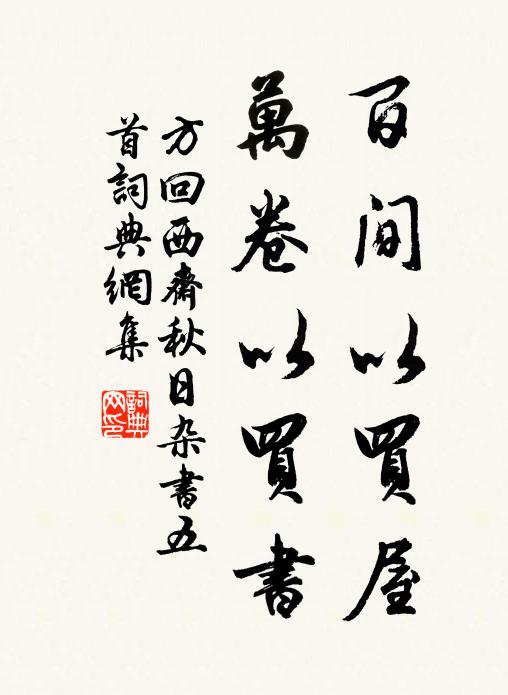 百间以買屋
萬卷以買書
方回西齋秋日杂書五
首詞典網集
詞典網印